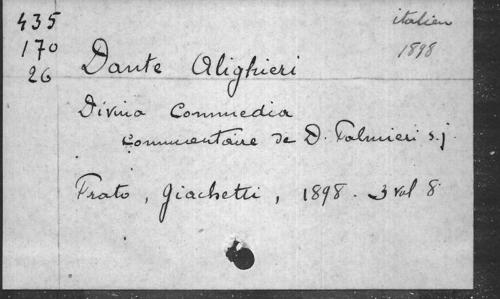 435
170
26
italien
1898
Dante Alighieri
Divina Commedia
commentaire de D. Palmieri s.j.
Prato, Giachetti, 1898. 3 vol 8º